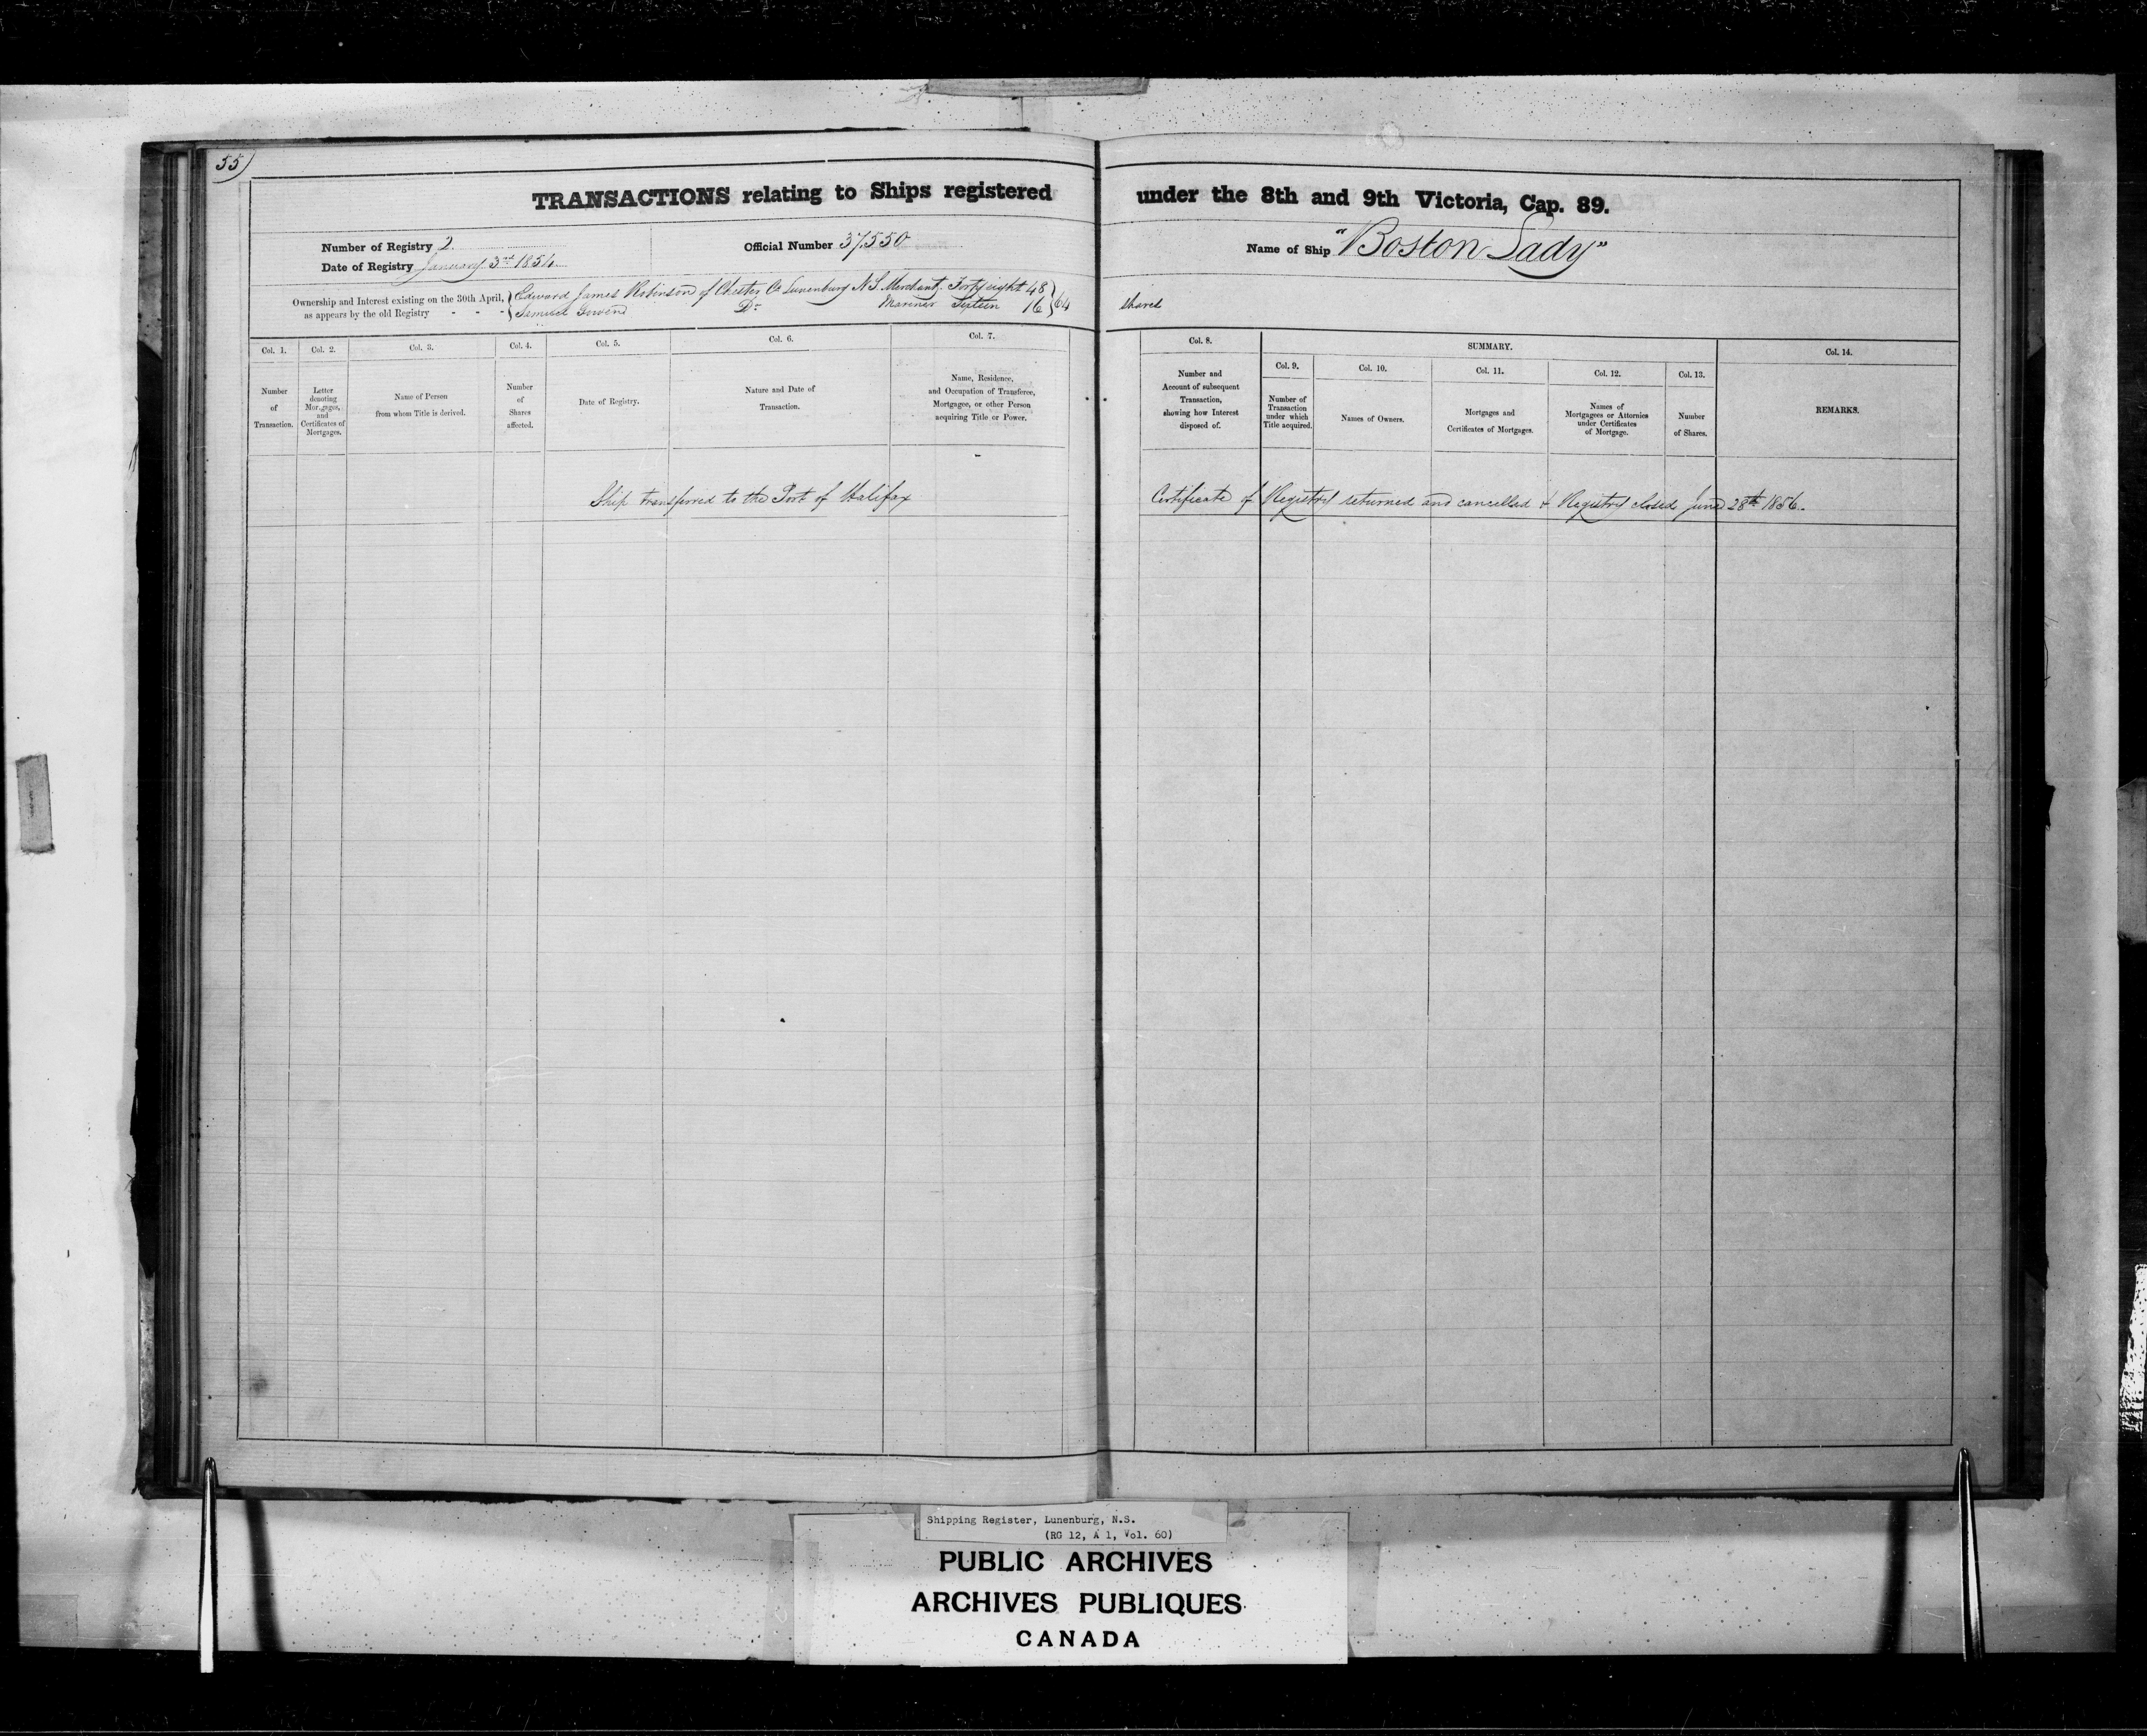 55)
TRANSACTIONS relating to Ships registered under the 8th and 9th Victoria, Cap. 89.
Number of Registry 2. Official Number 37.550 Name of Ship "Boston Lady"
Date of Registry January 3rd 1854
Ownership and Interest existing on the 30th April, } Edward James Robinson of Chester Co Lunenburg N S Merchant. Forty eight 48 } 64 shares
as appears by the old Registry - - - } Samuel Do Mariner Sixteen 16
Col. 1. Col. 2. Col. 3. Col. 4. Col. 5. Col. 6. Col. 7. Col. 8. SUMMARY. Col. 14.
Col. 9. Col. 10. Col. 11. Col. 12. Col. 13.
Number of Transaction.
Letter denoting Mortgages, and Certificates of Mortgages.
Name of Person from whom Title is derived.
Number of Shares affected.
Date of Registry.
Nature and Date of Transaction.
Name, Residence, and Occupation of Transferee, Mortgagee, or other Person acquiring Title or Power.
Number and Account of subsequent Transaction, showing how Interest disposed of.
Number of Transaction under which Title acquired.
Names of Owners.
Mortgages and Certificates of Mortgages.
Names of Mortgagees or Attornies under Certificates of Mortgage.
Number of Shares.
REMARKS.
Ship transferred to the Port of Halifax Certificate of Registry returned and cancelled & Registry closed June 28th 1856.
Shipping Register, Lunenburg, N.S.
(RG 12, A 1, Vol. 60)
PUBLIC ARCHIVES
ARCHIVES PUBLIQUES
CANADA